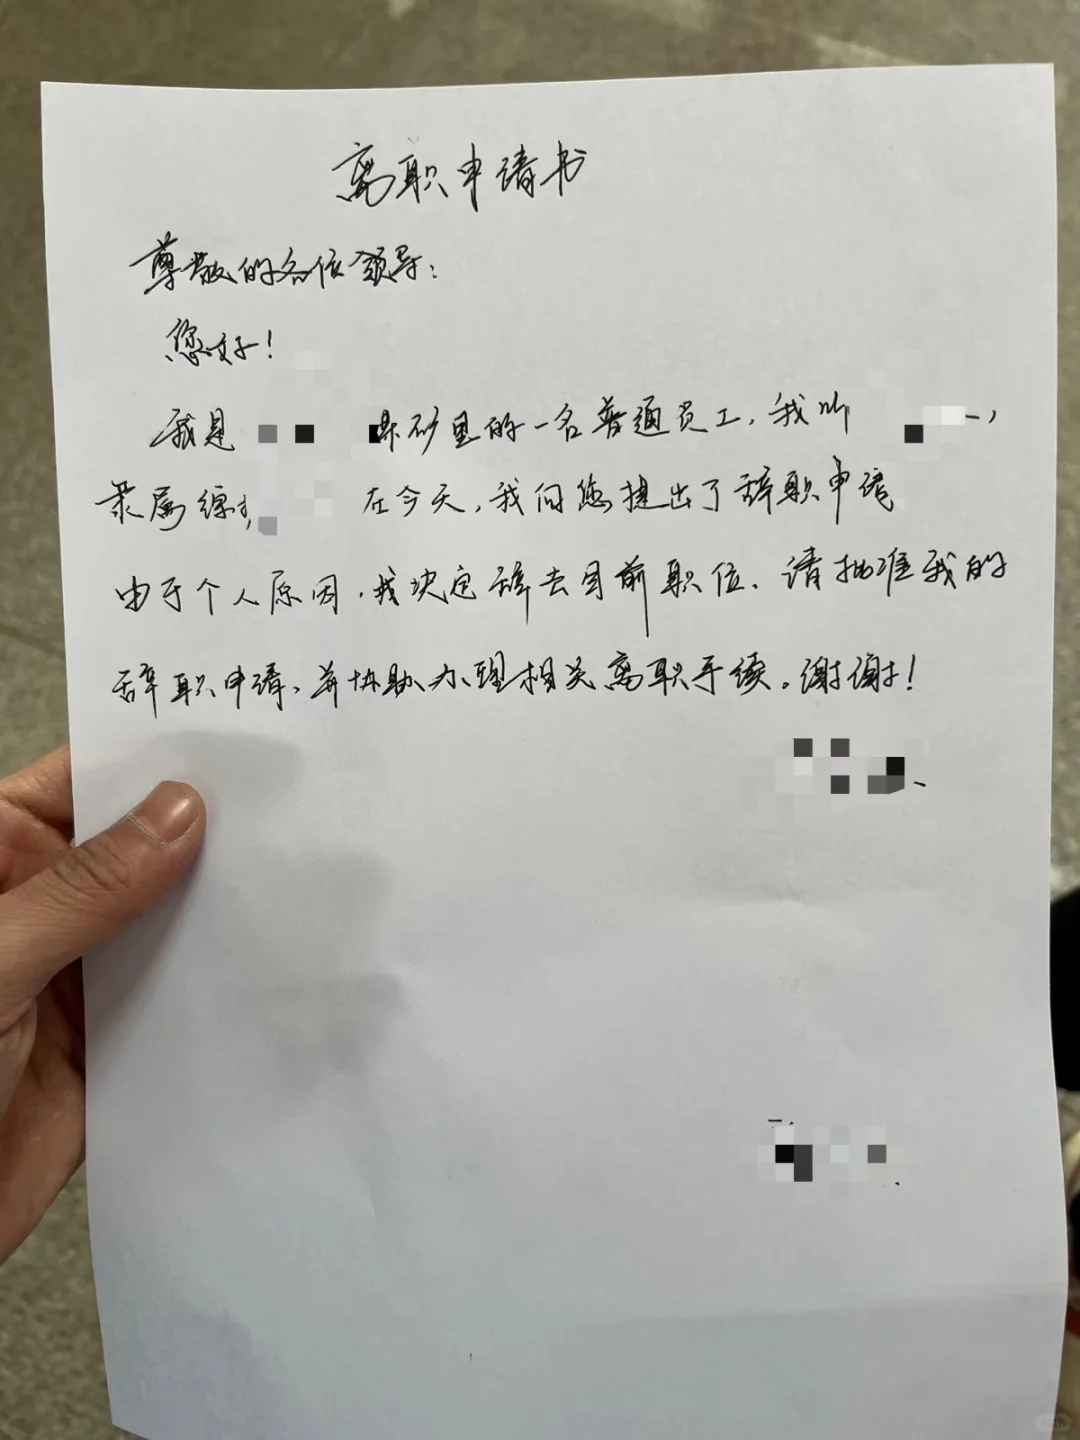 离职申请书
尊敬的各位领导：
您好！
我是 矿里的一名普通员工，我叫 ，
隶属综 在今天，我向您提出了辞职申请
由于个人原因，我决定辞去目前职位、请批准我的
辞职申请、并协助办理相关离职手续。谢谢！